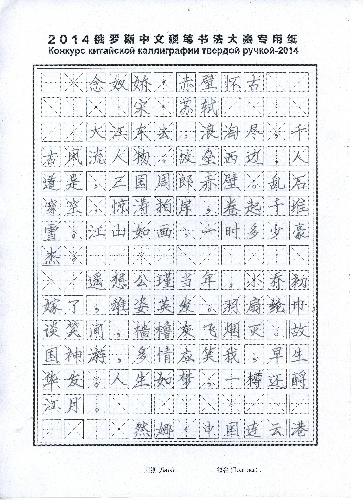 2014俄罗斯中文硬笔书法大赛专用纸
Конкурс китайской каллиграфии твердой ручкой-2014
念奴娇·赤壁怀古
宋·苏轼
大江东去，浪淘尽，千
古风流人物。故垒西边，人
道是，三国周郎赤壁。乱石
穿空，惊涛拍岸，卷起千堆
雪。江山如画，一时多少豪
杰。
遥想公瑾当年，小乔初
嫁了，雄姿英发。羽扇纶巾
谈笑间，樯橹灰飞烟灭。故
国神游，多情应笑我，早生
华发。人生如梦，一樽还酹
江月。
然娜：中国连云港